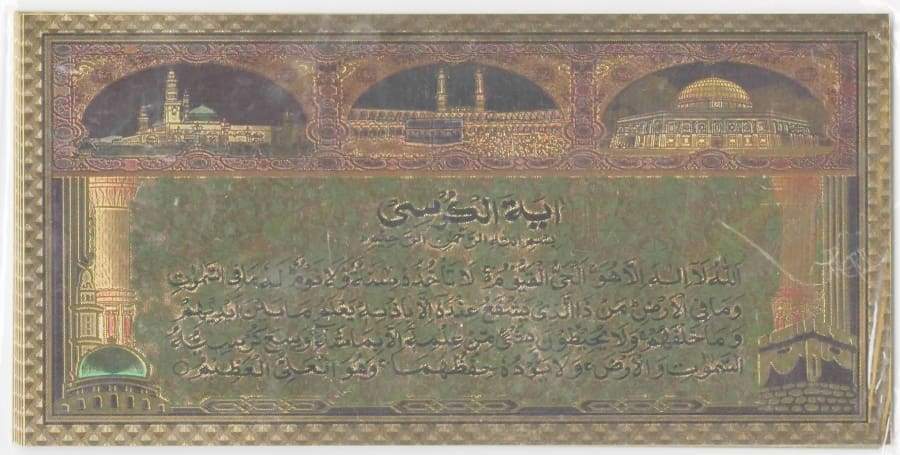 اية الكرسى
بسم الله الرحمن الرحيم
الله لا اله الا هو الحي القيوم لا تأخذه سنة ولا نوم له ما في السموت
وما في الارض من ذا الذي يشفع عنده الا باذنه يعلم ما بين ايديهم
وما خلفهم ولا يحيطون بشئ من علمه الا بما شاء وسع كرسيه
السموت والارض ولا يؤده حفظهما وهو العلي العظيم